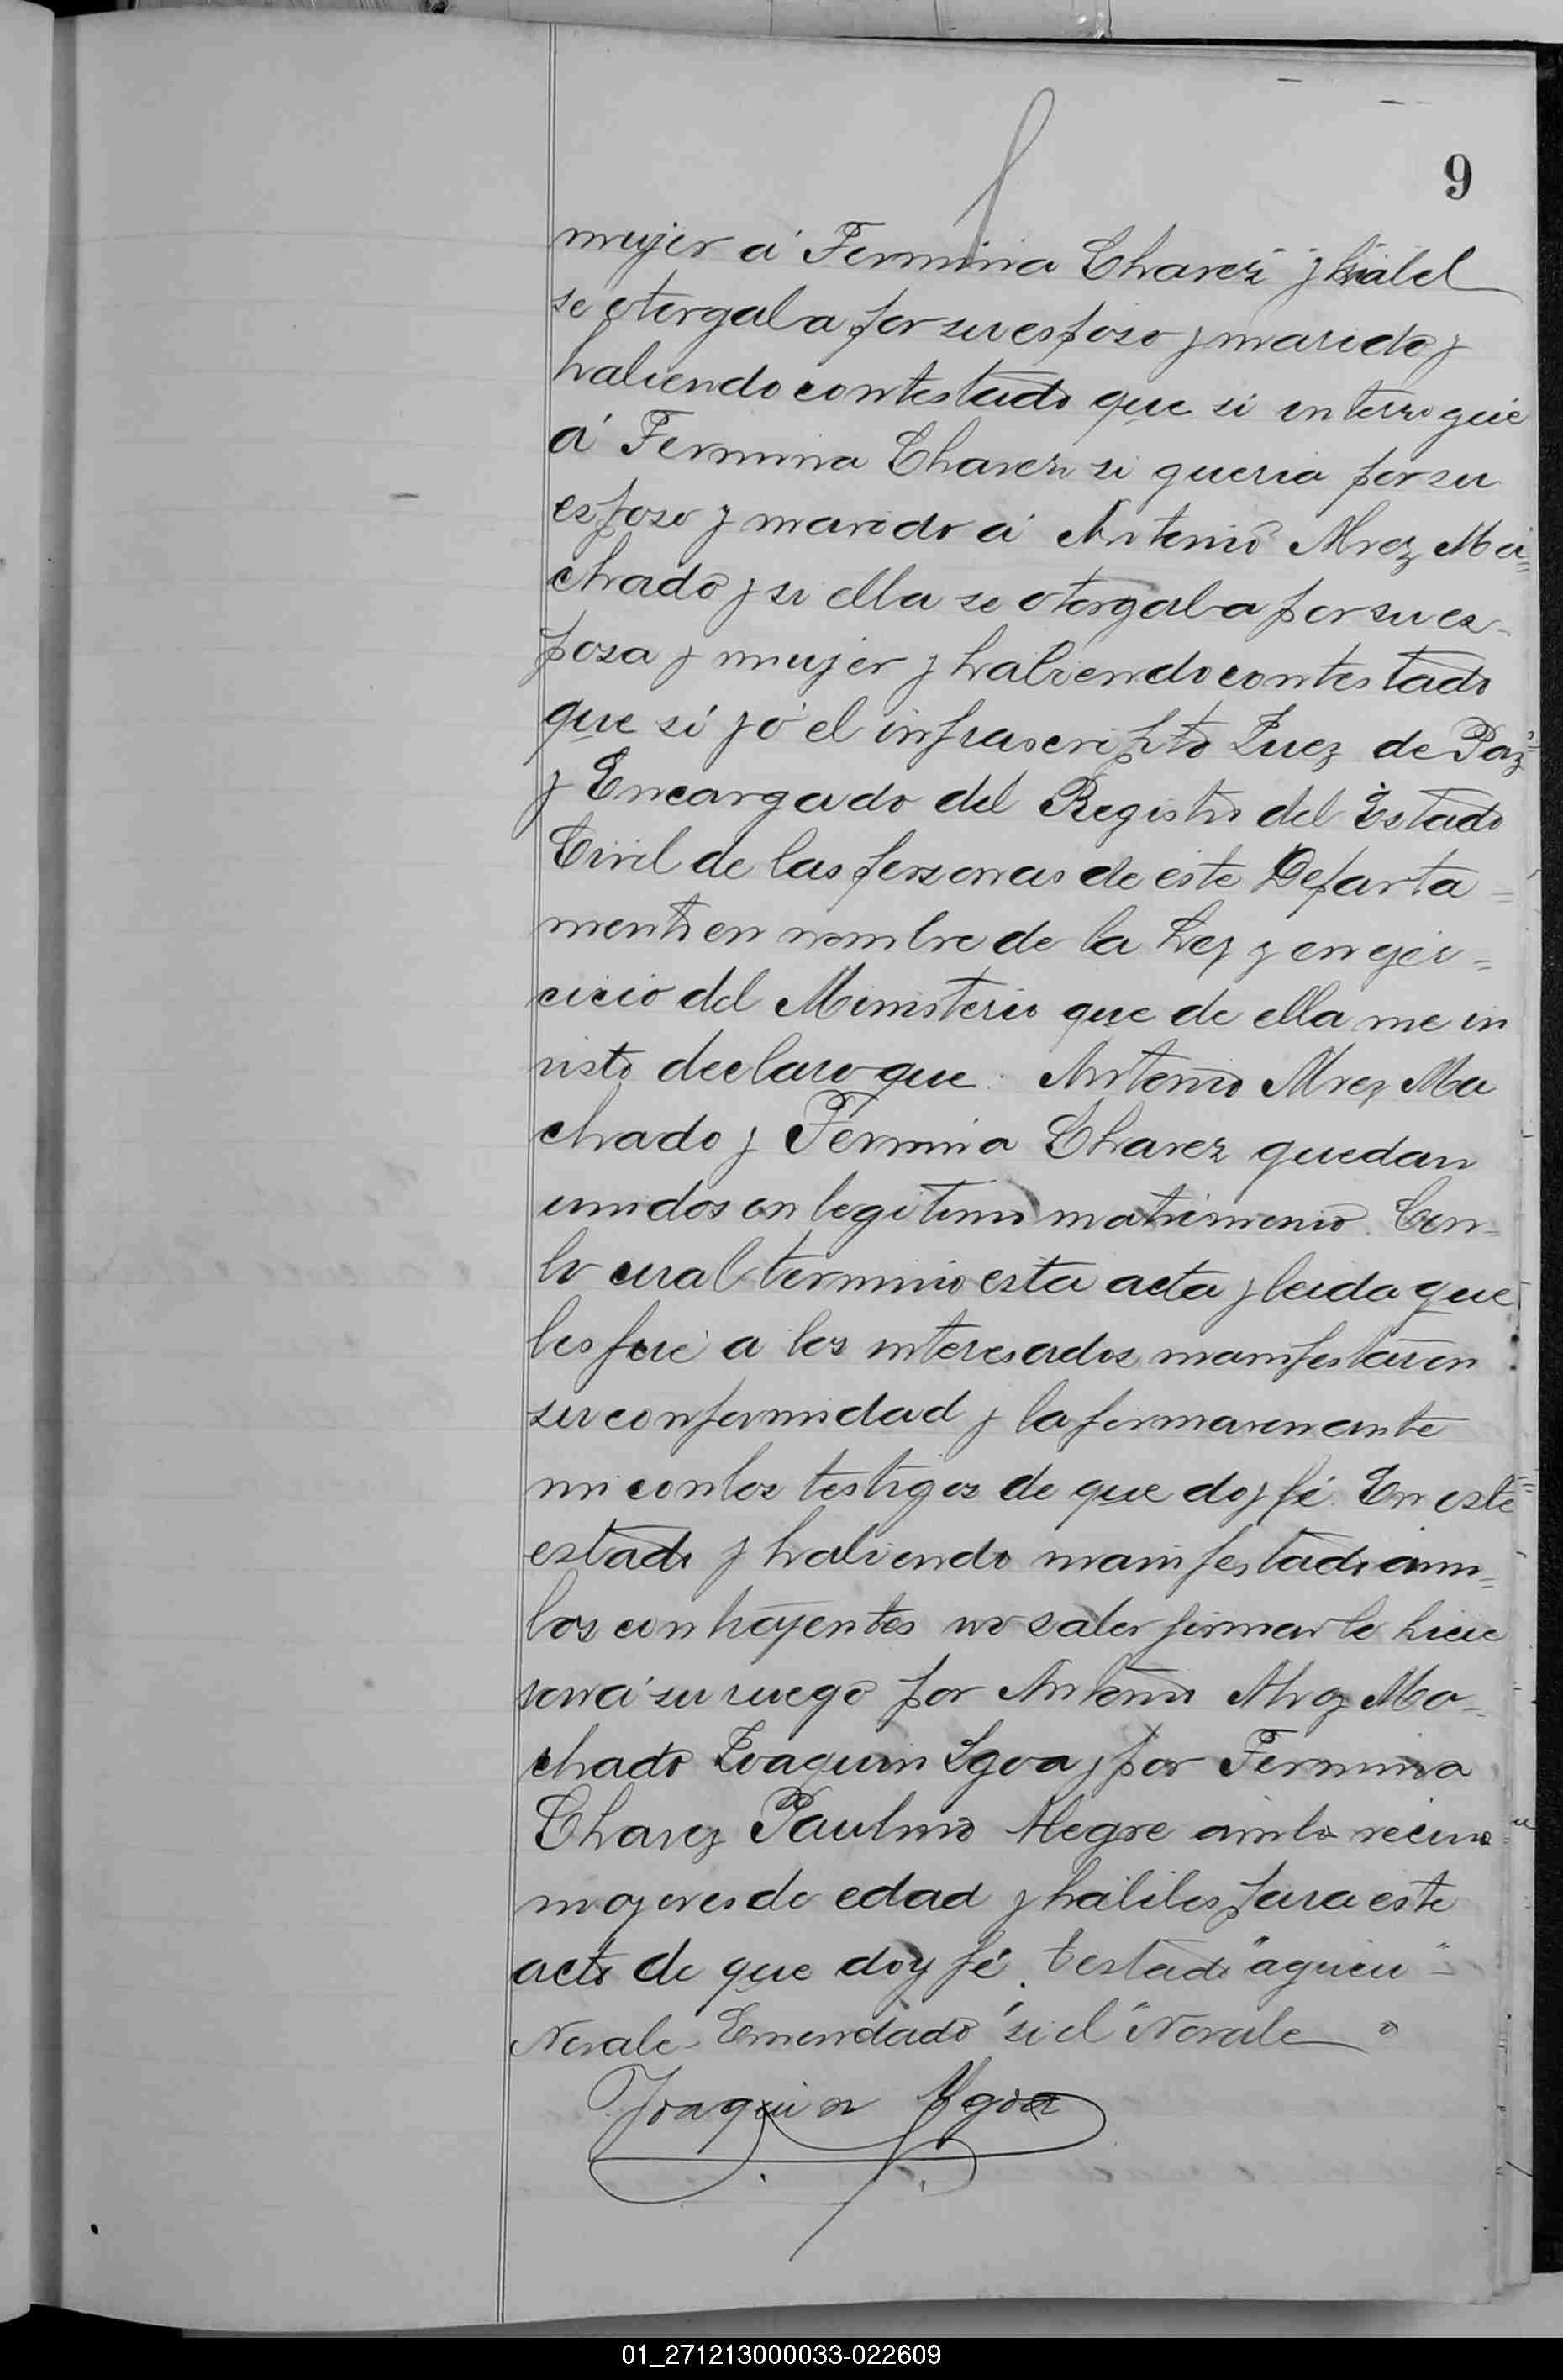 9
mujer á Fermina Chavez y si el
se otorgaba por su esposo y marido y
habiendo contestado que si interrogué
á Fermina Chavez si queria por su
esposo y marido á Antonio Alvez Ma=
chado y si ella se otorgaba por su es-
posa y mujer y habiendo contestado
que sí yó el infrascripto Juez de Paz
y Encargado del Registro del Estado
Civil de las personas de este Departa=
mento en nombre de la Ley y en ejer=
cicio del Ministerio que de ella me in
visto declaro que Antonio Alvez Ma
chado y Fermina Chavez quedan
unidos en legitimo matrimonio. Con=
lo cual terminó esta acta y leida que
les fué a los interesados manifestaron
su conformidad y la firmaron ante
mi con los testigos de que doy fé. En este
estado y habiendo manifestado am=
bos contrayentes no saber firmar lo hicie
ron á su ruego por Antonio Alvez Ma=
chado Joaquin Ygoa y por Fermina
Chavez Paulino Alegre ambos vecinos
mayores de edad y habiles para este
acto de que doy fé. Testado "aguieu"
No vale - Emendado "si el" No vale
Joaquin Ygoa
01_271213000033-022609